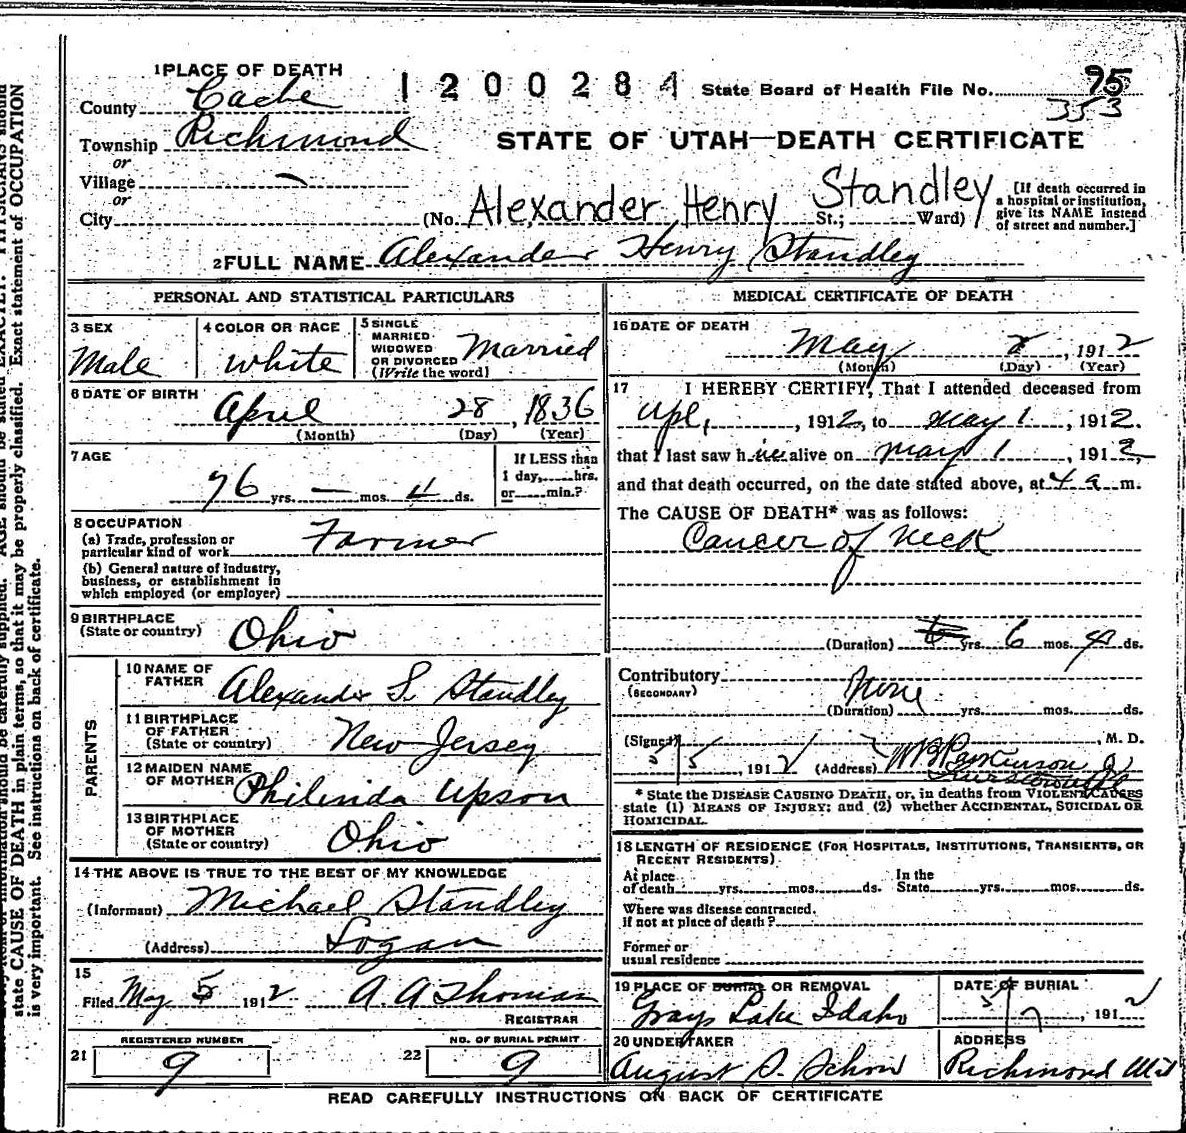 1 PLACE OF DEATH
1200284 State Board of Health File No. 95
353
County Cache
Township Richmond
or
Village —
or
City
STATE OF UTAH—DEATH CERTIFICATE
(No. Alexander Henry Standley St.; Ward)
[If death occurred in
a hospital or institution,
give its NAME instead
of street and number.]
2 FULL NAME Alexander Henry Standley
PERSONAL AND STATISTICAL PARTICULARS
3 SEX
Male
4 COLOR OR RACE
White
5 SINGLE
MARRIED
WIDOWED
OR DIVORCED
(Write the word)
Married
6 DATE OF BIRTH
April 28, 1836
(Month) (Day) (Year)
7 AGE
76 yrs. — mos. 4 ds.
If LESS than
1 day, hrs.
or min.?
8 OCCUPATION
(a) Trade, profession or
particular kind of work Farmer
(b) General nature of industry,
business, or establishment in
which employed (or employer)
9 BIRTHPLACE
(State or country) Ohio
PARENTS
10 NAME OF
FATHER Alexander S. Standley
11 BIRTHPLACE
OF FATHER
(State or country) New Jersey
12 MAIDEN NAME
OF MOTHER Philinda Upson
13 BIRTHPLACE
OF MOTHER
(State or country) Ohio
14 THE ABOVE IS TRUE TO THE BEST OF MY KNOWLEDGE
(Informant) Michael Standley
(Address) Logan
15
Filed May 5 1912 A. A. Thomas
REGISTRAR
21 REGISTERED NUMBER
9
22 NO. OF BURIAL PERMIT
9
MEDICAL CERTIFICATE OF DEATH
16 DATE OF DEATH
May 2, 1912
(Month) (Day) (Year)
17 I HEREBY CERTIFY, That I attended deceased from
Apl, , 1912, to May 1, 1912.
that I last saw him alive on May 1, 1912,
and that death occurred, on the date stated above, at 4 a m.
The CAUSE OF DEATH* was as follows:
Cancer of neck
(Duration) yrs. 6 mos. ds.
Contributory
(SECONDARY) None
(Duration) yrs. mos. ds.
(Signed) , M. D.
5/5, 1912 (Address) W B Parkinson
* State the DISEASE CAUSING DEATH, or, in deaths from VIOLENT CAUSES
state (1) MEANS OF INJURY; and (2) whether ACCIDENTAL, SUICIDAL OR
HOMICIDAL.
18 LENGTH OF RESIDENCE (FOR HOSPITALS, INSTITUTIONS, TRANSIENTS, OR
RECENT RESIDENTS)
At place
of death yrs. mos. ds.
In the
State yrs. mos. ds.
Where was disease contracted,
if not at place of death?
Former or
usual residence
19 PLACE OF BURIAL OR REMOVAL
Grays Lake Idaho
DATE OF BURIAL
5/7, 1912
20 UNDERTAKER
August S. Schow
ADDRESS
Richmond Utah
READ CAREFULLY INSTRUCTIONS ON BACK OF CERTIFICATE
state CAUSE OF DEATH in plain terms, so that it may be properly classified. Exact statement of OCCUPATION
is very important. See instructions on back of certificate.